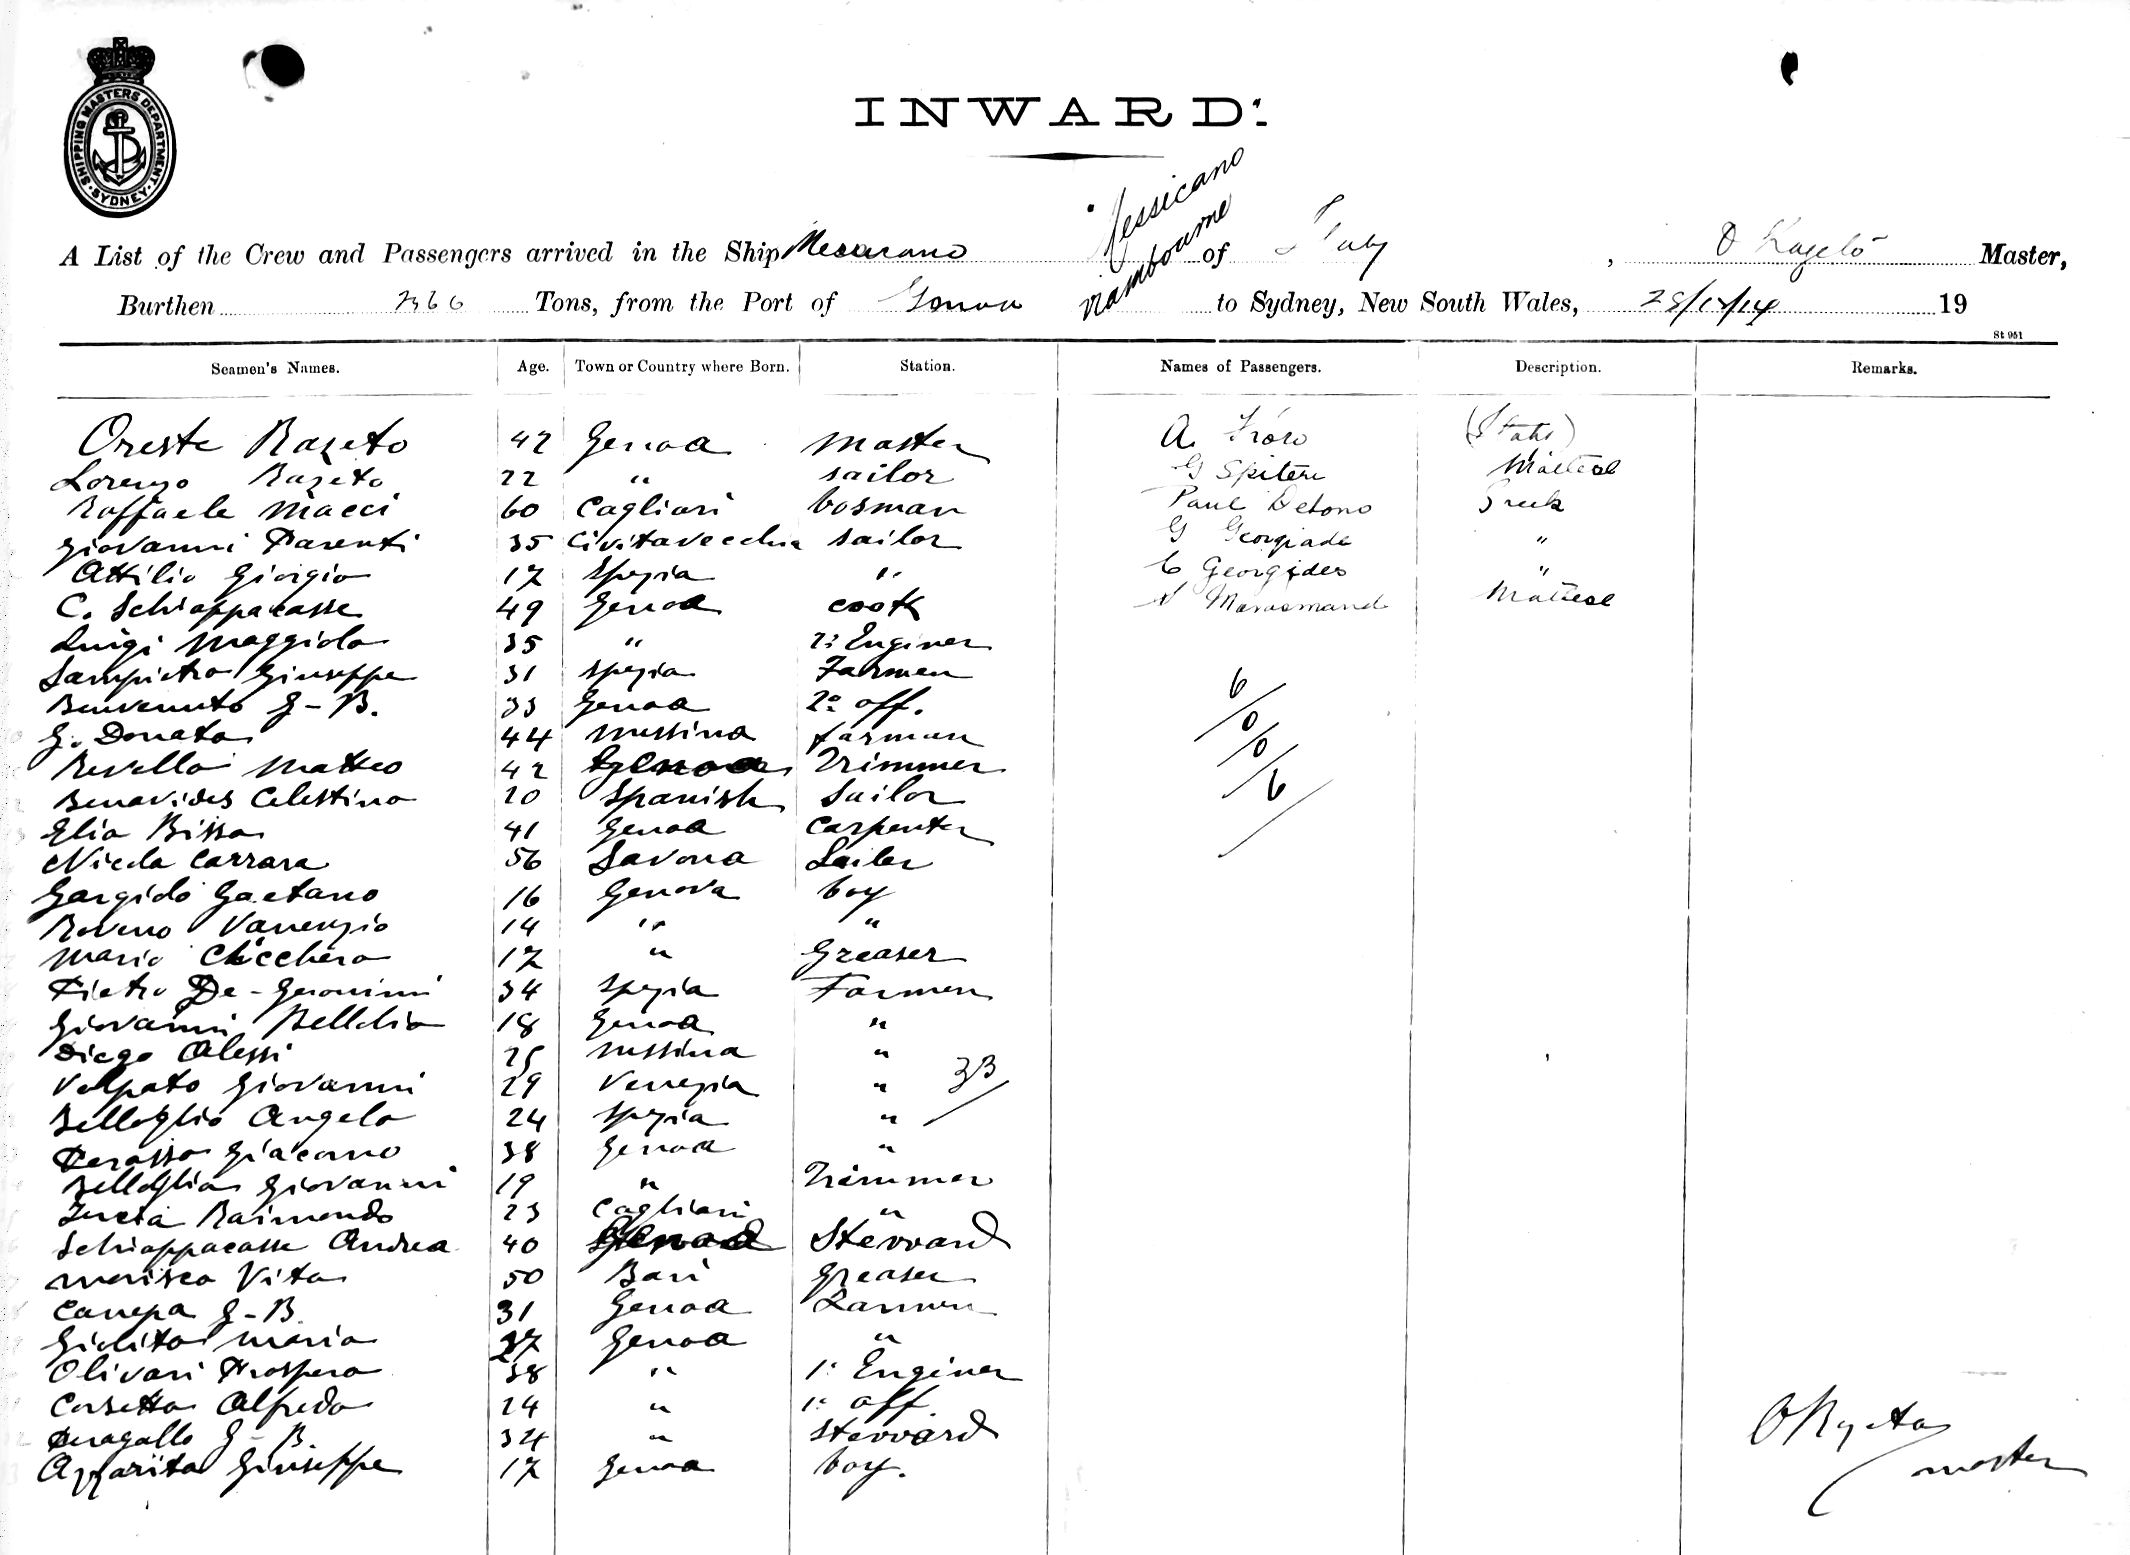 SHIPPING MASTERS DEPARTMENT SYDNEY
INWARD.
Messicano
A List of the Crew and Passengers arrived in the Ship of Italy, O Razeto Master,
Burthen Tons, from the Port of Genoa to Sydney, New South Wales, 19
St 951
Seamen's Names. Age. Town or Country where Born. Station. Names of Passengers. Description. Remarks.
Oreste Razeto 42 Genoa master A. (Italy)
Lorenzo Razeto 22 " sailor G Spiteri Maltese
Raffaele Macci 60 Cagliari bosman Paul Detono Greek
Giovanni Parenti 35 Civitavecchia sailor G Georgiade "
Attilio Giorgio 17 Spezia " C Georgides "
C. Schiappacasse 49 Genoa cook Maltese
Luigi Maggiolo 35 " 2º Enginer
Sampietro Giuseppe 31 Spezia Farmen
Benvenuto G-B. 33 Genoa 2º off. 6/
G. Donato 44 Messina farman 0/
Revello Matteo 42 Genoa Trimmer 0/
Benavides Celestino 20 Spanish Sailor 6/
Elia Bisso 41 Genoa Carpenter
Nicola Carrara 56 Savona Sailer
Gargido Gaetano 16 Genova boy
Roveno Vanenzio 14 " "
Mario Chicchero 17 " Greaser
Pietro De-Geronimi 34 Spezia Farmen
Giovanni Bellolio 18 Genoa "
Diego Alessi 25 Messina "
Volpato Giovanni 29 Venezia " 33/
Belloglio Angelo 24 Spezia "
Perasso Giacomo 38 Genoa "
Belloglio Giovanni 19 " Trimmer
Raimondo 23 Cagliari "
Schiappacasse Andrea 40 Genoa Stevvard
Morisco Vito 50 Bari Greaser
Canepa G-B. 31 Genoa Farmen
Giolito Mario 27 Genoa "
Olivari Prospero 38 " 1º Enginer
Corsetto Alfredo 24 " 1º off.
Peragallo G-B. 34 " stevvard
Azzarito Giuseppe 17 Genoa boy.
O Razeto
master